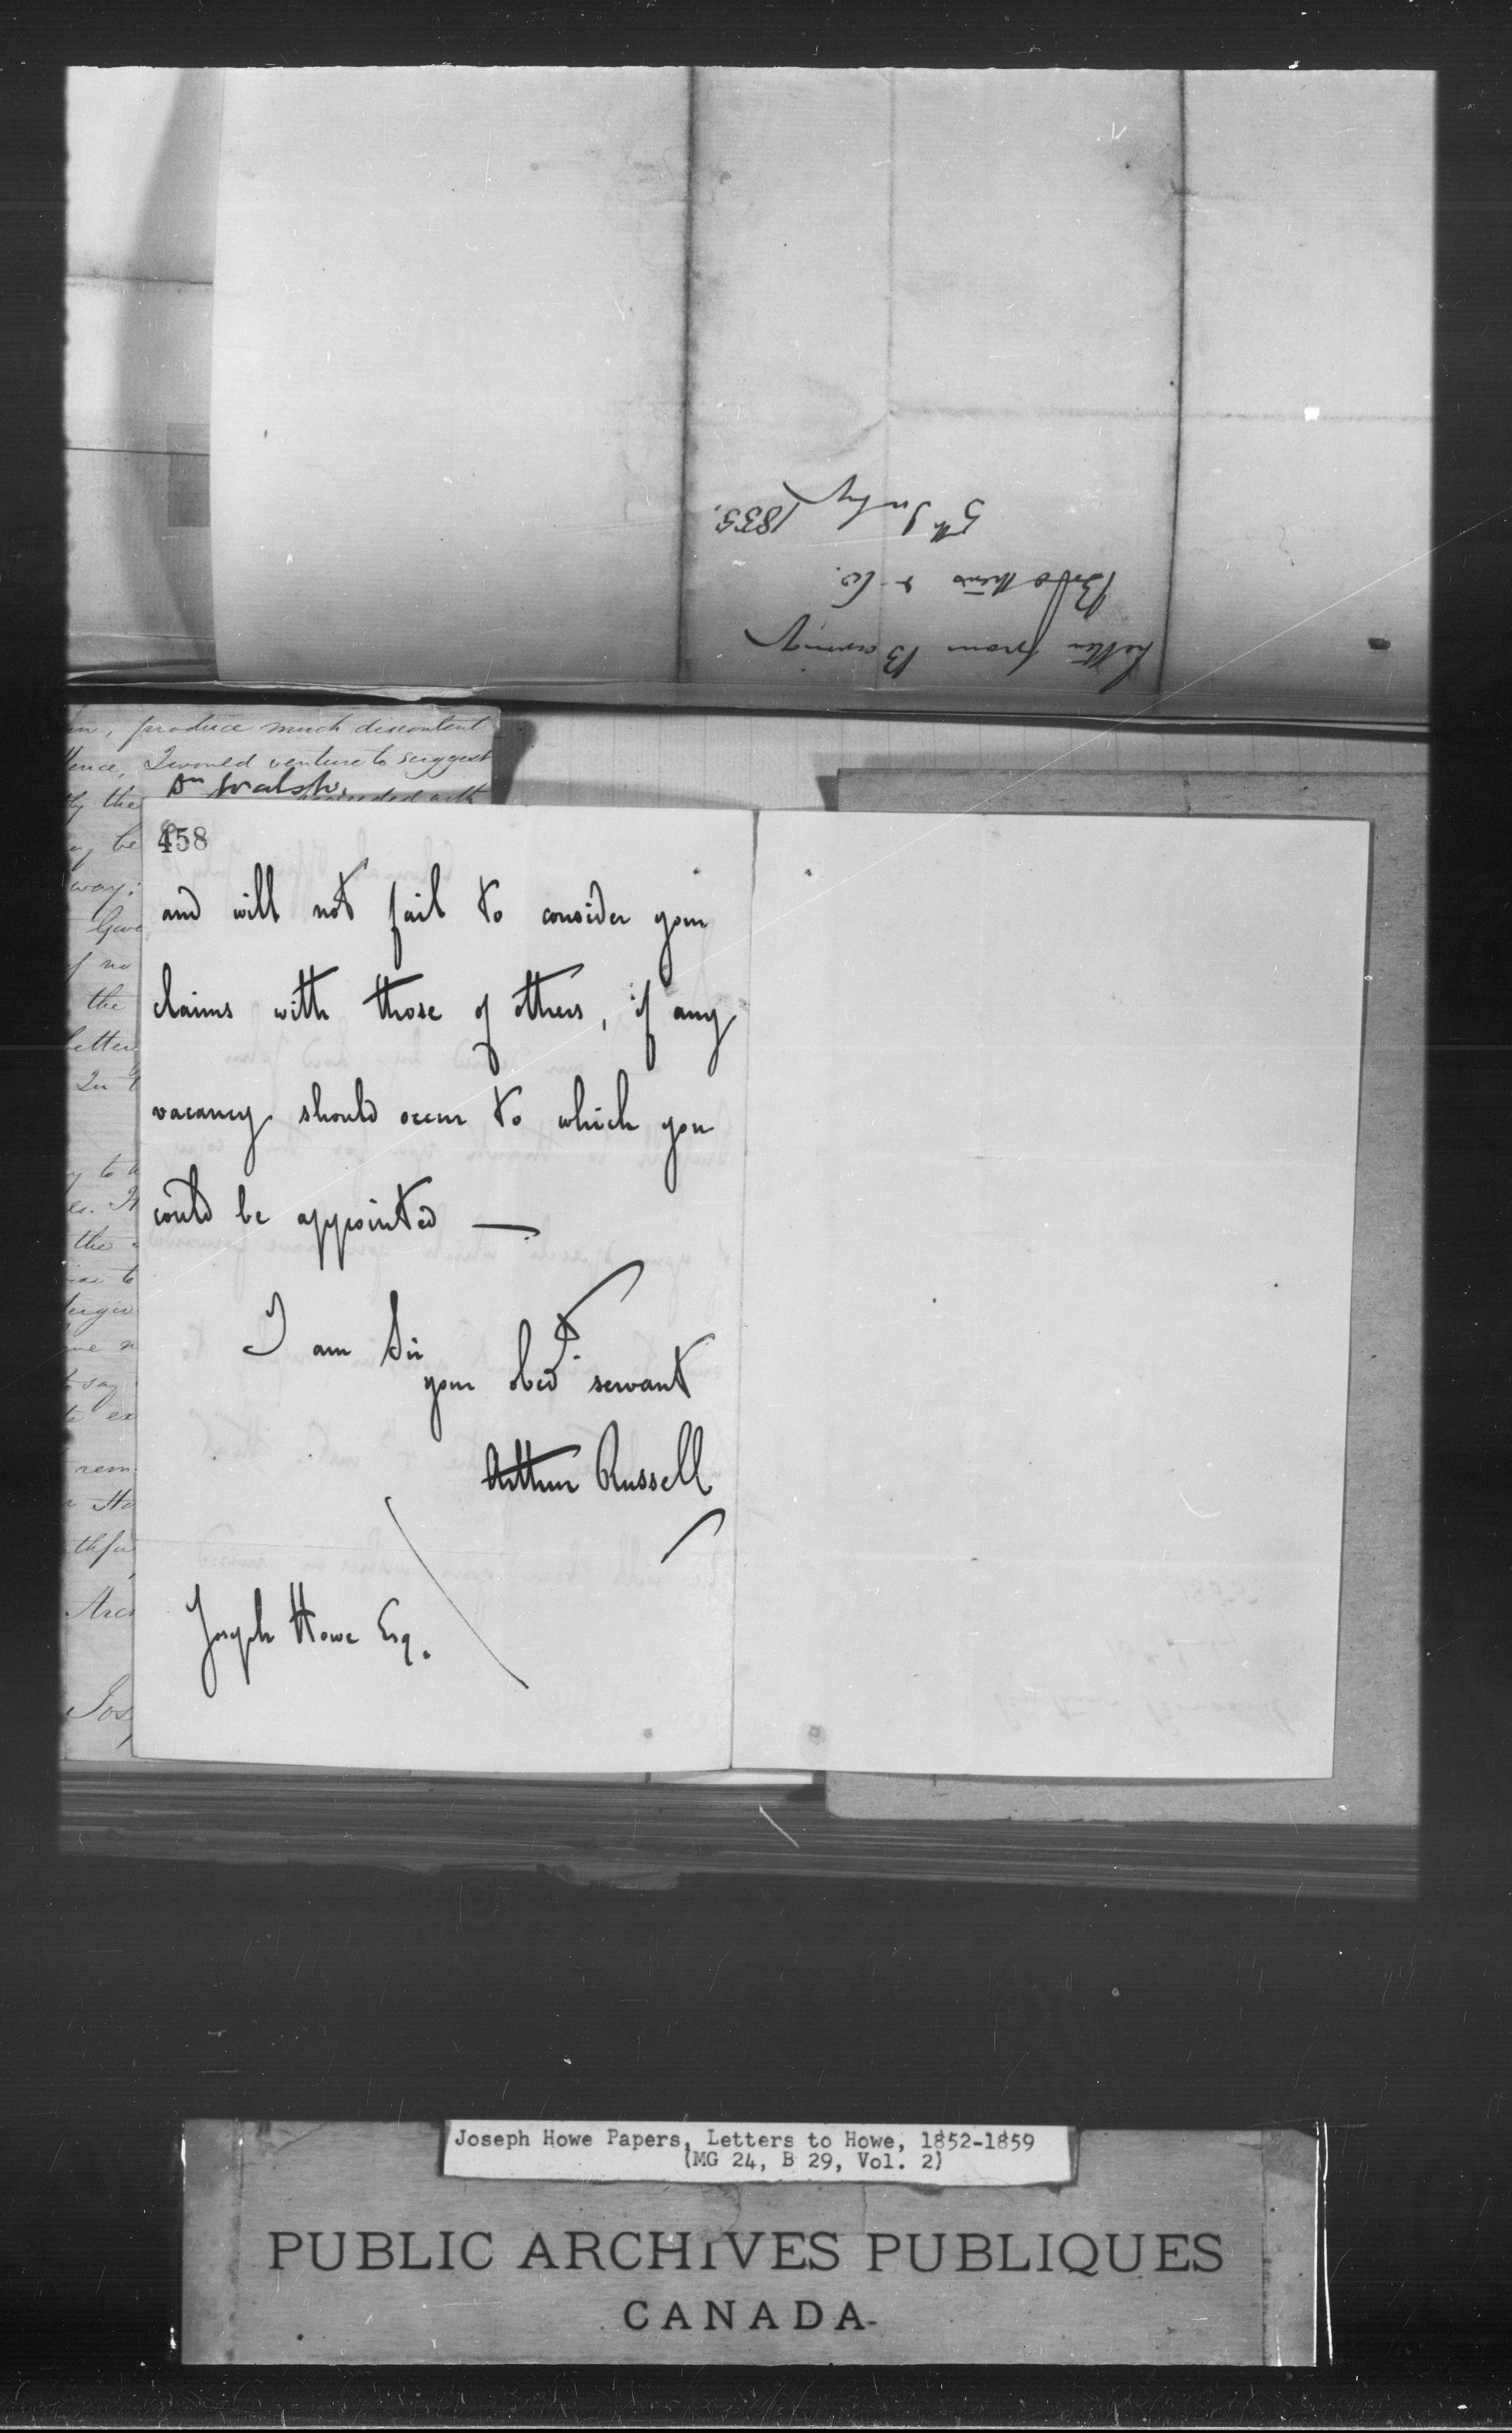 Letter from Baring
Brothers & Co.
5th July 1855.
produce much discontent
I would venture to suggest
Dr Walsh.
ty the
be
way.
Give
of no
the
letter
In
to
the
to
me
say
ex
rem
thfu
Jos
458
and will not fail to consider your
claims with those of others, if any
vacancy should occur to which you
could be appointed —.
I am Sir
your obedt. servant
Arthur Russell
Joseph Howe Esq.
Joseph Howe Papers, Letters to Howe, 1852-1859
(MG 24, B 29, Vol. 2)
PUBLIC ARCHIVES PUBLIQUES
CANADA